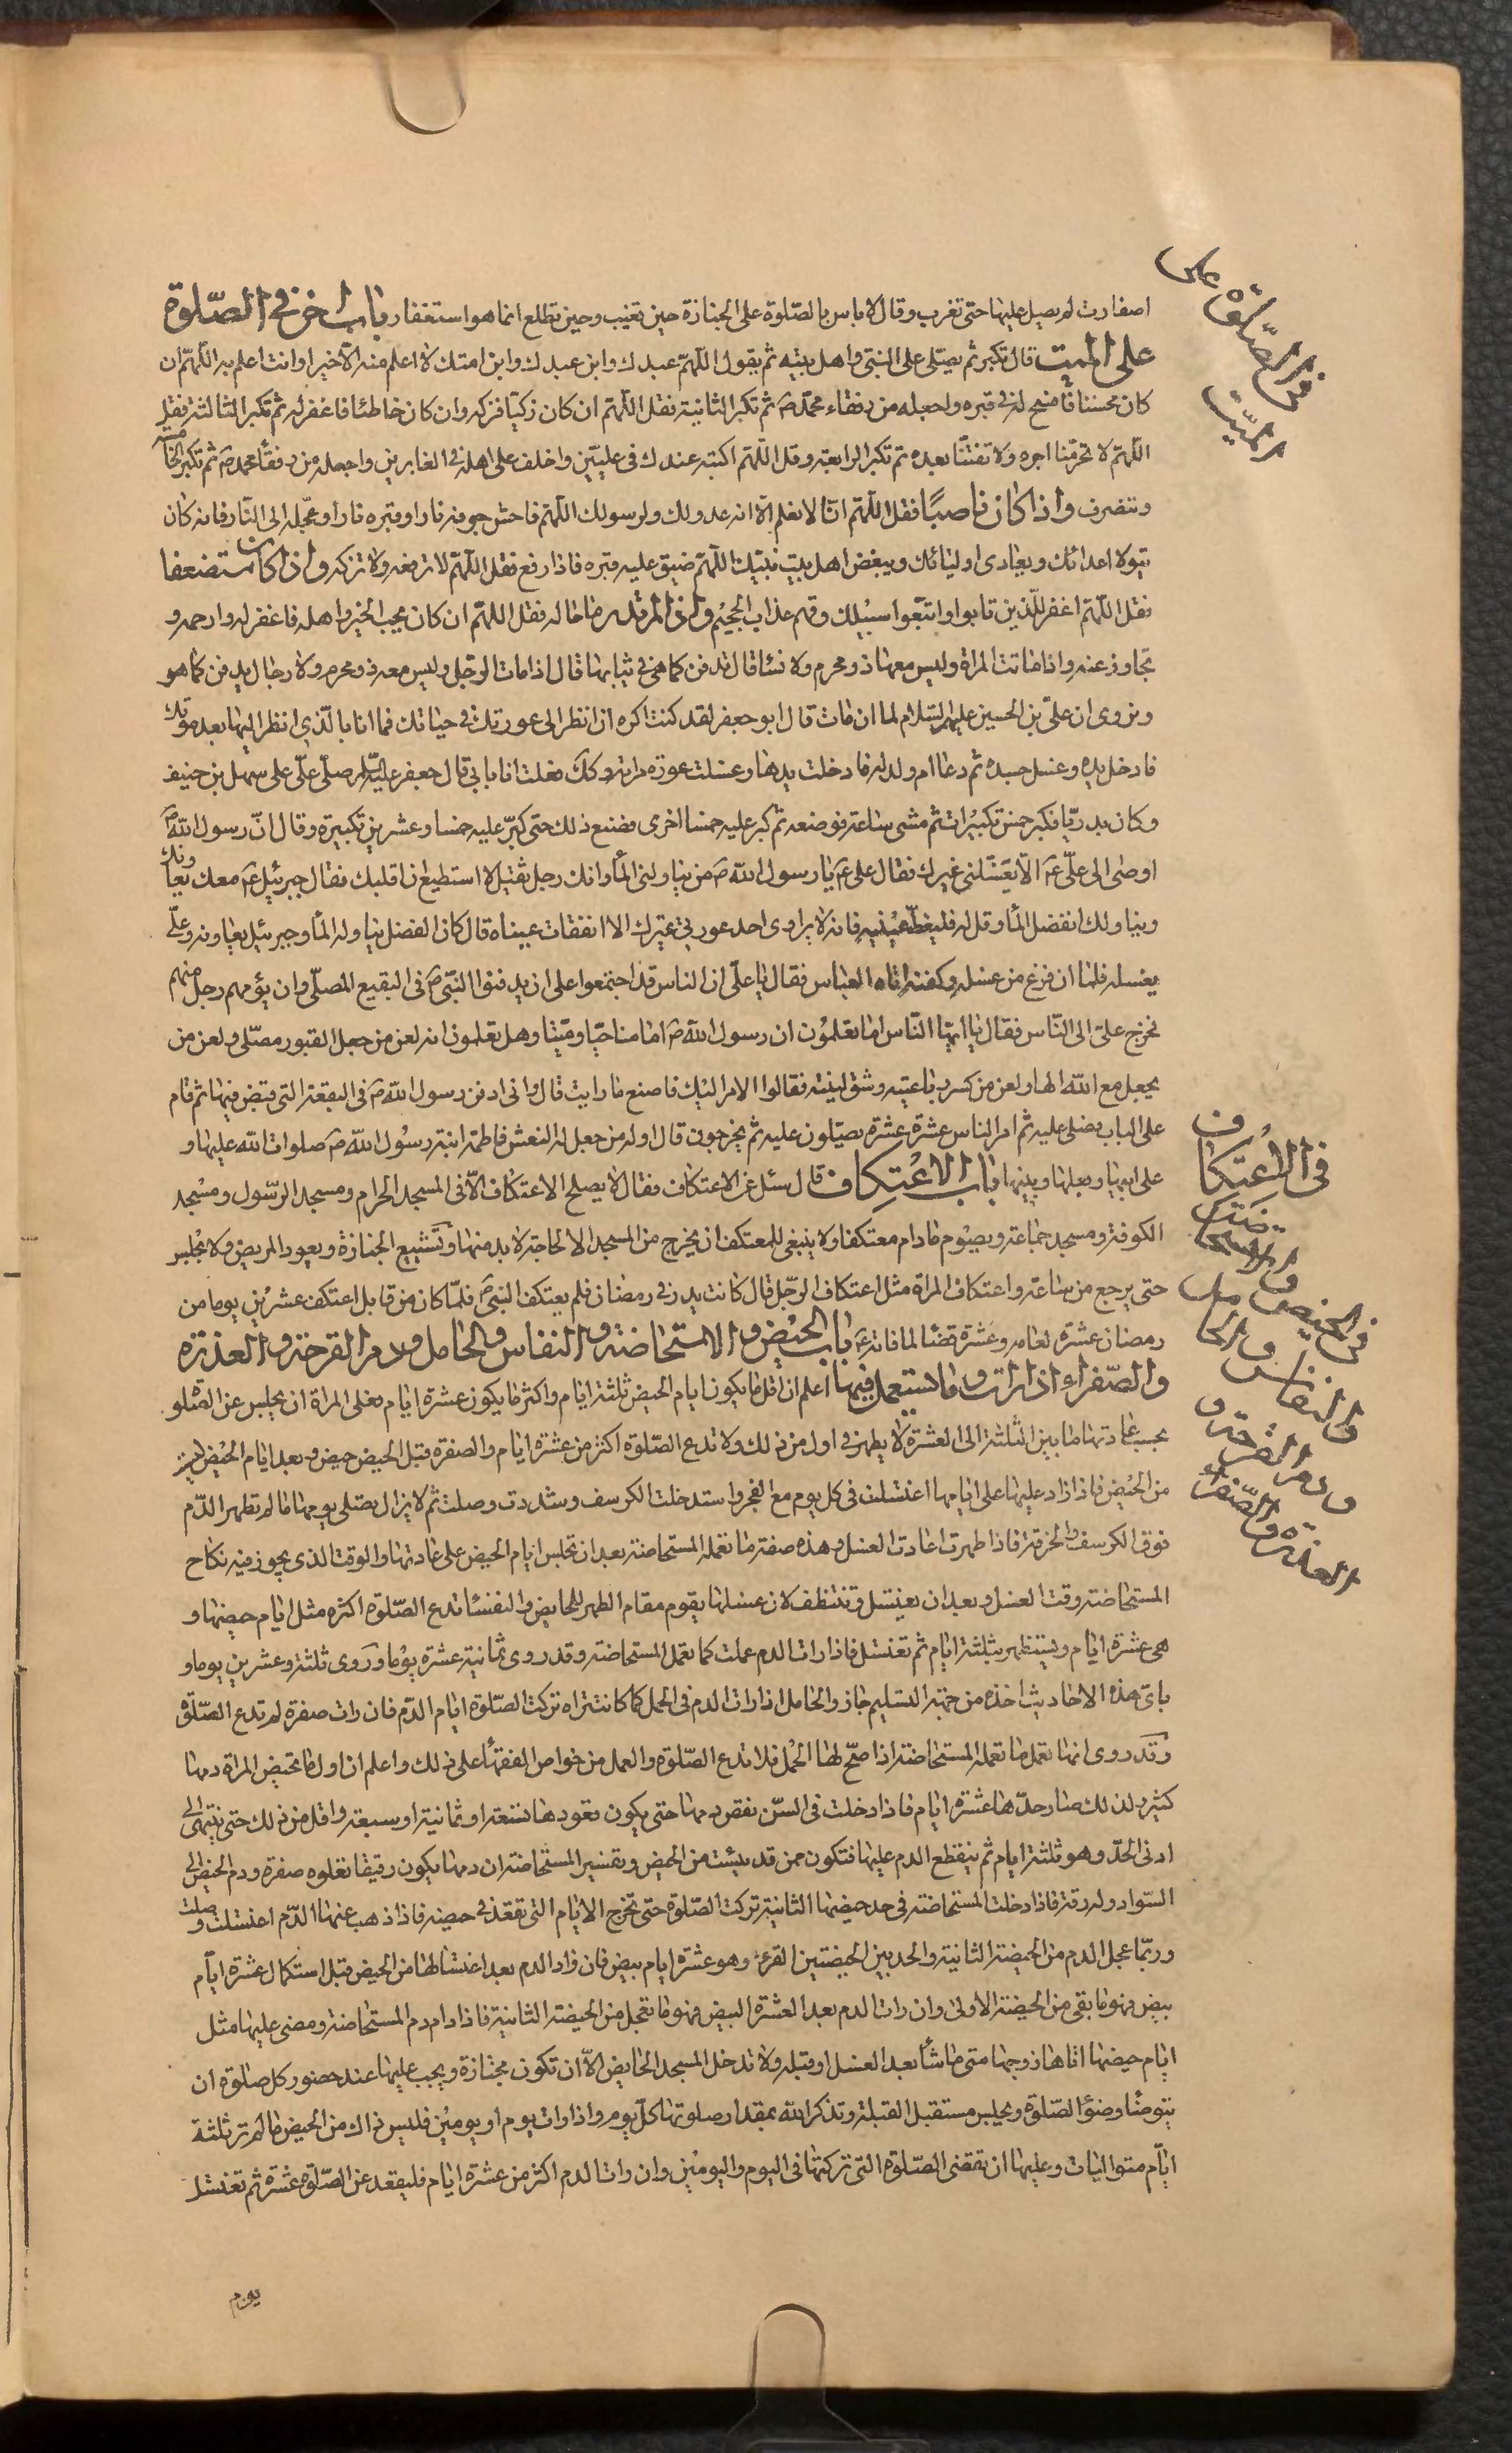 اصفارت لم يصل عليها حتى تغرب وقال لا باس بالصّلوة على الجنازة حين تغيب وحين تطلع انما هو استغفار باب اخر فى الصّلوة
على الميت قال تكبر ثم يصلّى على النبىّ واهل بيته ثم يقول اللّهمّ عبدك وابن عبدك وابن امتك لا اعلم منه الّا خيرا وانت اعلم به اللّهمّ ان
كان محسنا فافسح له فى قبره واجعله من رفقاء محمّد ص ثم تكبر الثانية فقل اللّهمّ ان كان زكيّا فزكه وان كان خاطئا فاغفر له ثم تكبر الثالثة فقل
اللّهمّ لا تحرمّنا اجره ولا تفتنّا بعده ثم تكبر الرابعة وقل اللّهم اكتبه عندك فى علييّن واخلف على اهله فى الغابرين واجعله من رفقاء محمد ص ثم تكبر الخامسة
وتنصرف واذا كان ناصبًا فقل اللّهمّ انّا لا نعلم الّا انه عدو لك ولرسولك اللّهم فاحش جوفه نارا وقبره نارا وعجّله الى النّار فانه كان
يتولا اعدائك ويعادى اوليائك ويبغض اهل بيت نبيّك اللّهمّ ضيق عليه قبره فاذا رفع فقل اللّهمّ لا ترفعه ولا تزكه واذا كان مستضعفا
فقل اللّهمّ اغفر للّذين تابوا واتبعّوا سبيلك وقهم عذاب الجحيم واذا لم تدر ما حاله فقل اللهمّ ان كان يحب الخير واهله فاغفر له وارحمه و
تجاوز عنه واذا ماتت المراة وليس معها ذو محرم ولا نسا قال تدفن كما هى فى ثيابها قال اذا مات الرجّل وليس معه ذو محرم ولا رجال يدفن كما هو
ونروى ان علىّ بن الحسين عليهم السّلام لما ان مات قال ابو جعفر لقد كنت اكره ان انظر الى عورتك فى حياتك فما انا بالّذى انظر اليها بعد موتك
فادخل يده وغسل جسده ثم دعا ام ولد له فادخلت يدها وغسلت عورة مراته وكك فعلت انا بابى قال جعفر عليه السّلام صلّى علىّ على سهل بن حنيف
وكان بدريّا فكبر خمس تكبيرات ثم مشى ساعة فوضعه ثم كبر عليه خمسا اخرى فصنع ذلك حتى كبّر عليه خمسا وعشرين تكبيرة وقال انّ رسول اللّه ص
اوصى الى علىّ ع الّا يغسّلنى غيرك فقال على ع يا رسول اللّه ص من يناولنى الماء وانك رجل ثقيل لا استطيع ان اقلبك فقال جبرئيل ع معك يعاونك
ويناولك الفضل الماء وقل له فليغطّ عينيه فانه لا يراوى احد عورتى غيرك الا انفقات عيناه قال كان الفضل يناوله الماء وجبرئيل يعاونه وعلّى
يغسله فلما ان فرغ من غسله وكفنه اتاه العباس فقال يا علّى ان الناس قد اجتمعوا على ان يدفنوا النبّى ص فى البقيع المصلّى وان يؤمهم رجل منهم
فخرج علىّ الى النّاس فقال يا ايهّا النّاس اما تعلمون ان رسول اللّه ص امامنا حيّا وميّتا وهل تعلمون انه لعن من جعل القبور مصلّى ولعن من
يجعل مع اللّه الها ولعن من كسر رباعيته وشق لثيته فقالوا الامر اليك فاصنع ما رايت قال وانى ادفن رسول اللّه ص فى البقعة التى قبض فيها ثم قام
على الباب يصلى عليه ثم امر الناس عشرة عشرة يصلّون عليه ثم يخرجون قال اوله من جعل له النعش فاطمة ابنة رسول اللّه ص صلوات اللّه عليها و
على ابيها وبعلها وبنيها باب الاعتكاف قال سئل عن الاعتكاف فقال لا يصلح الاعتكاف الّا فى المسجد الحرام ومسجد الرسّول ومسجد
الكوفة ومسجد جماعة ويصوم مادام معتكفا ولا ينبغى للمعتكف ان يخرج من المسجد الا لحاجة لا بد منها وتشييع الجنازة ويعود المريض ولا يجلس
حتى يرجع من ساعته واعتكاف المراة مثل اعتكاف الرجّل قال كانت بدر فى رمضان فلم يعتكف النبى ص فلمّا كان من قابل اعتكف عشرين يوما من
رمضان عشرة لعامه وعشرة قضا لما فاته ع باب الحيض والاستحاضة والنفاس والحامل ودم القرحة والعذرة
والصّفراء اذا رات وما يستعمل فيها اعلم ان اقل ما يكون ايام الحيض ثلثة ايام واكثر ما يكون عشرة ايام فعلى المراة ان يجلس عن الصّلو
بحسب عادتها ما بين الثلثة الى العشرة لا يطهر فى اول من ذلك ولا تدع الصّلوة اكثر من عشرة ايام والصفرة قبل الحيض حيض وبعد ايام الحيض ليس
من الحيض فاذا زاد عليها على ايامها اغتسلت فى كل يوم مع الفجر واستدخلت الكرسف وشددت وصلت ثم لا يزال يصلى يومها مالم تطهر الدّم
فوق الكرسف والخرقة فاذا طهرت اعادت الغسل وهذه صفة ما تعمله المستحاضة بعد ان تجلس ايام الحيض على عادتها والوقت الذى يجوز فيه نكاح
المستحاضة وقت الغسل وبعد ان يغتسل وتتنظف لان غسلها يقوم مقام الطهر للحايض والنفسا تدع الصّلوة اكثره مثل ايام حيضها و
هى عشرة ايام ويستظهر بثلثة ايام ثم تغتسل فاذا رات الدم عملت كما تعمل المستحاضة وقد روى ثمانية عشرة يوما وروى ثلثة وعشرين يوما و
باى هذه الاحاديث اخذه من جهة التسليم جاز والحامل اذا رات الدم فى الحمل كما كانت تراه تركت الصّلوة ايام الدّم فان رات صفرة لم تدع الصّلوة
وقد روى انها تعمل ما تعمله المستحاضة اذا صحّ لها الحمل فلا تدع الصّلوة والعمل من خواص الفقهاء على ذلك واعلم ان اول ما تحيض المراة دمها
كثير ولذلك صار حدّها عشرة ايام فاذا دخلت فى السّن نقص دمها حتى يكون قعودها تسعة او ثمانية او سبعة واقل من ذلك حتى ينتهى الى
ادنى الحدّ وهو ثلثة ايام ثم ينقطع الدم عليها فتكون ممن قد يئست من الحيض وتفسير المستحاضة ان دمها يكون رقيقا تعلوه صفرة ودم الحيض الى
السّواد وله رقة فاذا دخلت المستحاضة فى حد حيضها الثانية تركت الصّلوة حتى تخرج الايام التى تقعد فى حيضه فاذا ذهب عنها الدّم اغتسلت وصلت
وربمّا عجل الدم من الحيضة الثانية والحد بين الحيضتين القرء وهو عشرة ايام بيض فان زاد الدم بعد اغتسالها من الحيض قبل استكمال عشرة ايّام
بيض فهو ما بقى من الحيضة الاولى وان رات الدم بعد العشرة البيض فهو ما تعجل من الحيضة الثانية فاذا دام دم المستحاضة ومضى عليها مثل
ايام حيضها اتاها زوجها متى ما شأ بعد الغسل او قبله ولا تدخل المسجد الحايض الّا ان تكون مجتازة ويجب عليها عند حضور كل صلوة ان
يتوضأ وضؤ الصّلوة ويجلس مستقبل القبلة وتذكر اللّه بمقدار صلوتها كلّ يوم واذا رات يوم او يومين فليس ذاك من الحيض مالم تر ثلثة
ايّام متواليات وعليها ان يقضى الصّلوة التى تركتها فى اليوم واليومين وان رات الدم اكثر من عشرة ايام فليقعد عن الصّلوة عشرة ثم تغتسل
يوم
فى الصّلوة على
الميّت
فى الاعتكاف
فى الحيض و
والنفاس والحامل
ودم القرحة و
العذرة والصّفراء